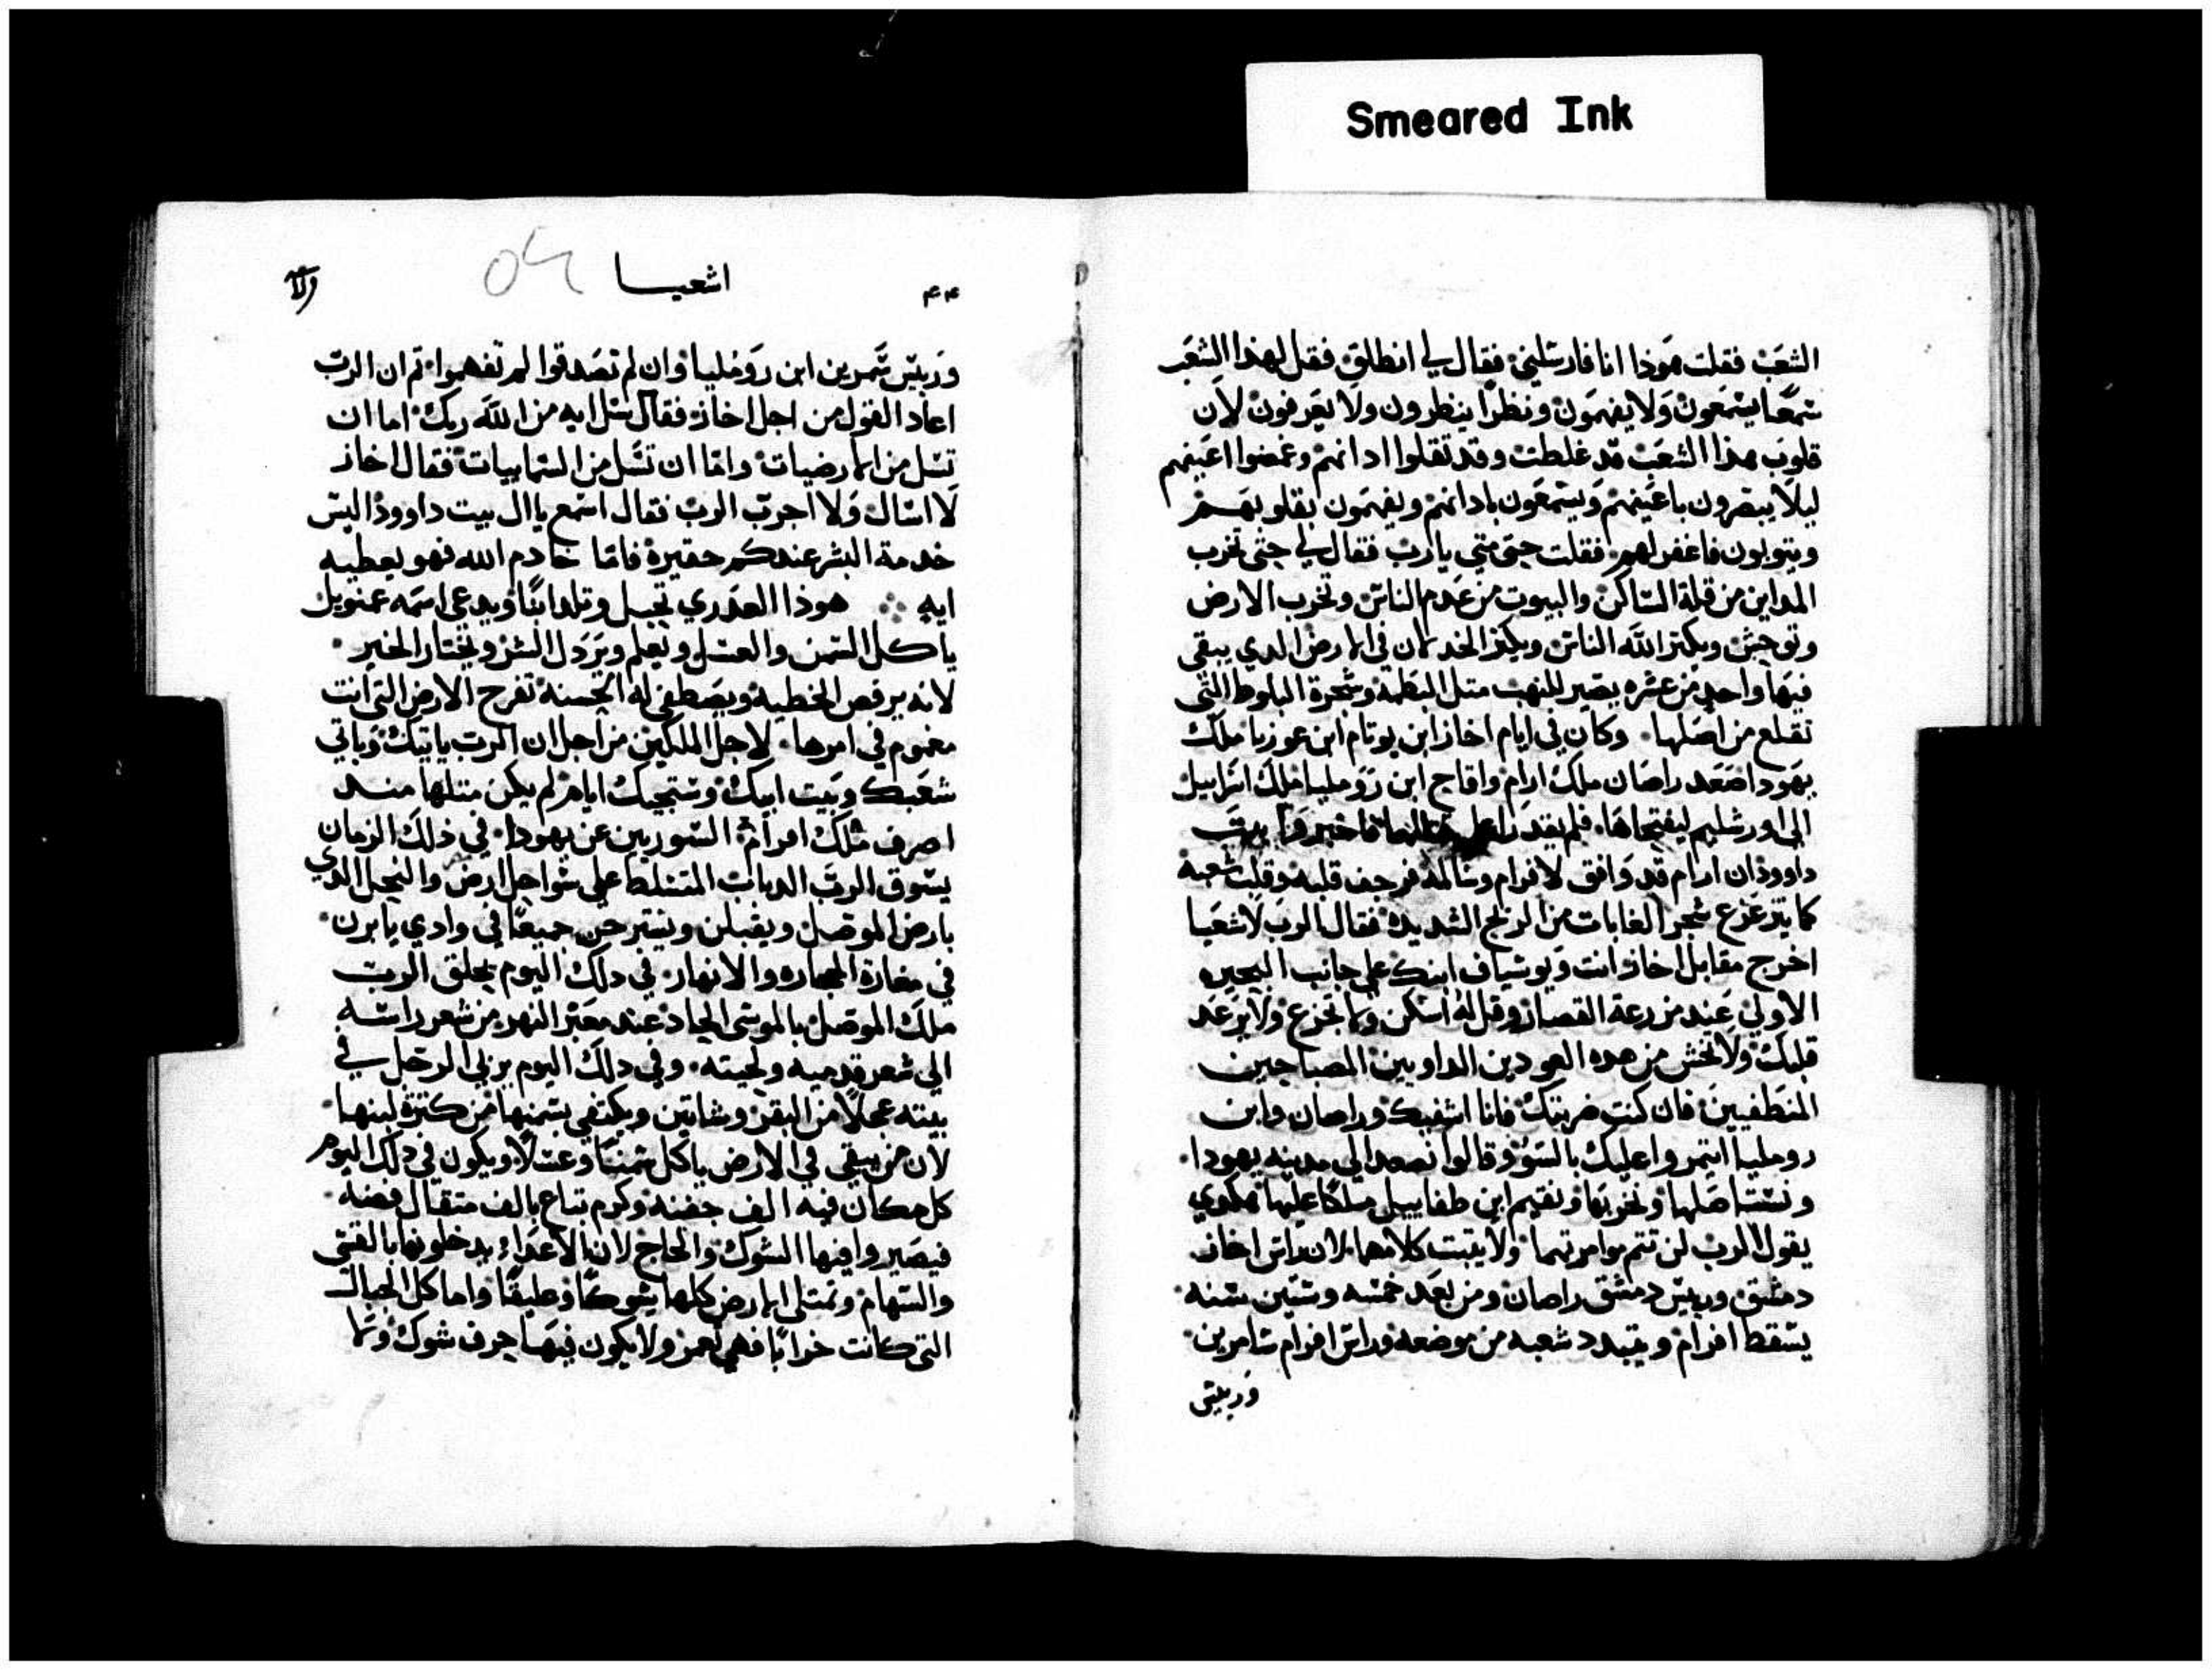 Smeared Ink
الشعب فقلت هوذا انا فارسلني فقال لي انطلق فقل لهذا الشعب
سمعا يسمعون ولا يفهمون ونظرا ينظرون ولا يعرفون لان
قلوب هذا الشعب قد غلطت وقد تقلوا ادانهم وغمضوا اعينهم
ليلا يبصرون باعينهم ويسمعون بادانهم ويفهمون بقلوبهم
ويتوبون فاغفر لهم فقلت حتى متى يارب فقال لي حتى تخرب
المداين من قلة الساكن والبيوت من عدم الناس وتخرب الارض
وتوحش ويكثر الله الناس ويكثر الخدلان في الارض الدي يبقى
فيها واحد من عشره يصير للنهب متل البطمة وشجرة البلوط التي
تقلع من اصلها وكان في ايام اخاز ابن يوتام ابن عوزيا ملك
يهودا صعد راصان ملك ارام وافاح ابن رومليا ملك اسراييل
الى اورشليم ليفتحاها فلم يقدرا على فاخبروا بيت
داوود ان ارام قد وافق لافرام وسالمه فرجف قلبه وقلب شعبه
كما يتزعزع شجر الغابات من الريح الشديدة فقال الرب لاشعيا
اخرج مقابل اخاز انت ويوشياف ابنك على جانب البحيره
الاولى عند مزرعة القصار وقل له اسكن ولا تجزع ولا يرعد
قلبك ولا تخش من هده العودين الداويين المصباحين
المنطفيين فان كنت ضربتك فانا اشفيك وراصان وابن
رومليا ايتمروا عليك بالسؤ وقالوا نصعد الى مدينه يهودا
ونستاصلها ونخربها ونقيم ابن طفاييل ملكا عليها هكدي
يقول الرب لن تتم موامرتهما ولا يتبت كلامهما لان راس اخاز
دمشق وريس دمشق راصان ومن بعد خمسه وستين سنه
يسقط افرام ويتبدد شعبه من موضعه وراس افرام سامرين
وريس
٤٤
اشعيا
وريس شمرين ابن روفليا وان لم تصدقوا لم تفهموا تم ان الرب
اعاد القول من اجل اخاز فقال سل ايه من الله ربك اما ان
تسل من الارضيات واما ان تسل من السماييات فقال اخاز
لا اسال ولا اجرب الرب فقال اسمع ياال بيت داوود اليس
خدمة البشر عندكم حقيرة فاما خادم الله فهو يعطيه
ايه هوذا العدري تحبل وتلد ابنا ويدعى اسمه عمنويل
ياكل السمن والعسل ويعلم ويرذل الشر ويختار الخير
لانه يرفض الخطيه ويصطفي له الحسنه تفرح الارض التي انت
مغموم في امرها لاجل الملكين من اجل ان الرب ياتيك وياتي
شعبك وبيت ابيك وستجيك ايام لم يكن متلها مند
اصرف ملك افرام السوريين عن يهودا في ذلك الزمان
يسوق الرب الدباب المتسلط على سواحل ارض والنحل الدي
بارض الموصل ويقبلن ويسترحن جميعا في وادي يابرن
في مغارة الحجاره والانهار في دلك اليوم يحلق الرب
ملك الموصل بالموسى الحاد عند معبر النهر من شعر راسه
الى شعر قدميه ولحيته وفي دلك اليوم يربي الرجل في
بيته عجلا من البقر وشاتين ويكتفي بسمنها من كترة لبنها
لان من يبقي في الارض ياكل سمنا وعسلا ويكون في دلك اليوم
كل مكان فيه الف جفنه وكرم تباع بالف متقال فضه
فيصيروا فيها الشوك والحاج لان الاعداء يدخلونها بالقسى
والسهام وتمتلى الارض كلها شوكا وعليقا واما كل الجبال
التي كانت خرابا فهي تعمر ولا يكون فيها حرف شوك ولا